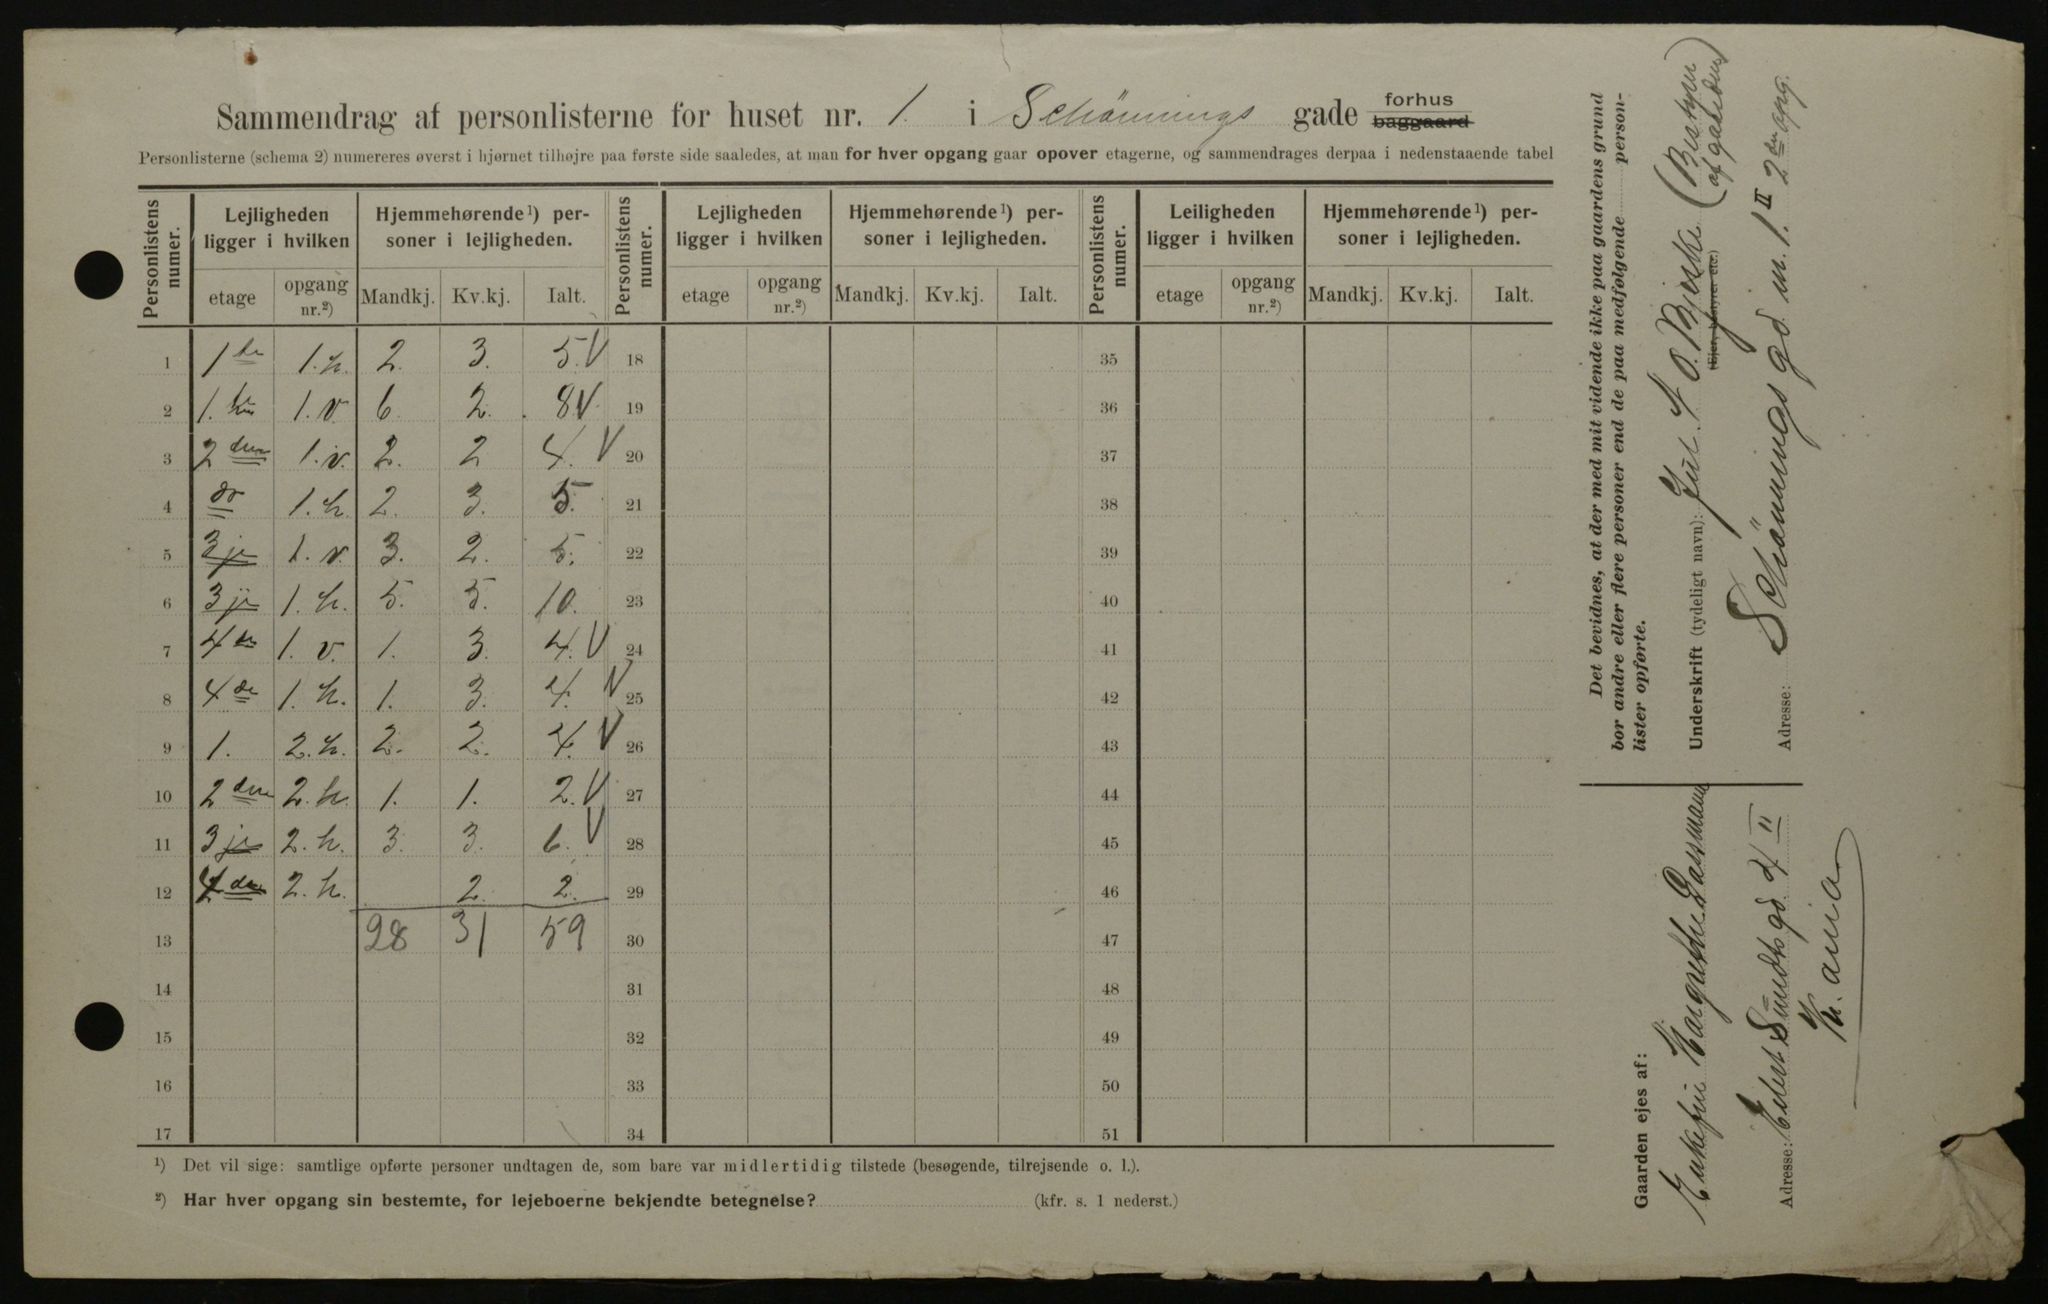 Sammendrag af personlisterne for huset nr. 1. i Schönnings gade forhus baggaard
Personlisterne (schema 2) numereres øverst i hjørnet tilhøjre paa første side saaledes, at man for hver opgang gaar opover etagerne, og sammendrages derpaa i nedenstaaende tabel
Personlistens numer. Lejligheden ligger i hvilken Hjemmehørende ¹) personer i lejligheden. Personlistens numer. Lejligheden ligger i hvilken Hjemmehørende ¹) personer i lejligheden. Personlistens numer. Leiligheden ligger i hvilken Hjemmehørende ¹) personer i lejligheden.
etage opgang nr.²) Mandkj. Kv.kj. Ialt. etage opgang nr.²) Mandkj. Kv.kj. Ialt. etage opgang nr.²) Mandkj. Kv.kj. Ialt.
1 1ste 1.h. 2. 3. 5. V 18 35
2 1.ste 1.v. 6. 2. 8 V 19 36
3 2den 1.v. 2. 2 4. V 20 37
4 do 1.h. 2. 3. 5. 21 38
5 3je 1.v. 3. 2. 5. 22 39
6 3je 1.h. 5. 5. 10. 23 40
7 4de 1.v. 1. 3. 4. V 24 41
8 4de 1.h. 1. 3. 4. V 25 42
9 1. 2.h. 2. 2. 4. V 26 43
10 2den 2.h. 1. 1. 2. V 27 44
11 3je 2.h. 3. 3. 6. V 28 45
12 4de 2.h. 2. 2. 29 46
13 28 31 59 30 47
14 31 48
15 32 49
16 33 50
17 34 51
¹) Det vil sige: samtlige opførte personer undtagen de, som bare var midlertidig tilstede (besøgende, tilrejsende o. l.).
²) Har hver opgang sin bestemte, for lejeboerne bekjendte betegnelse? (kfr. s. 1 nederst.)
Det bevidnes, at der med mit vidende ikke paa gaardens grund
bor andre eller flere personer end de paa medfølgende person-
lister opførte.
Underskrift (tydeligt navn): Jul O. Bjerke (Bestyrer af gaarden)
(Ejer, bestyrer etc.)
Adresse: Schönnings gd n. 1 II 2den opg.
Gaarden ejes af:
Enkefru Margrethe Gassmann
Adresse: Eilert Sundts gd 4 II
K.ania